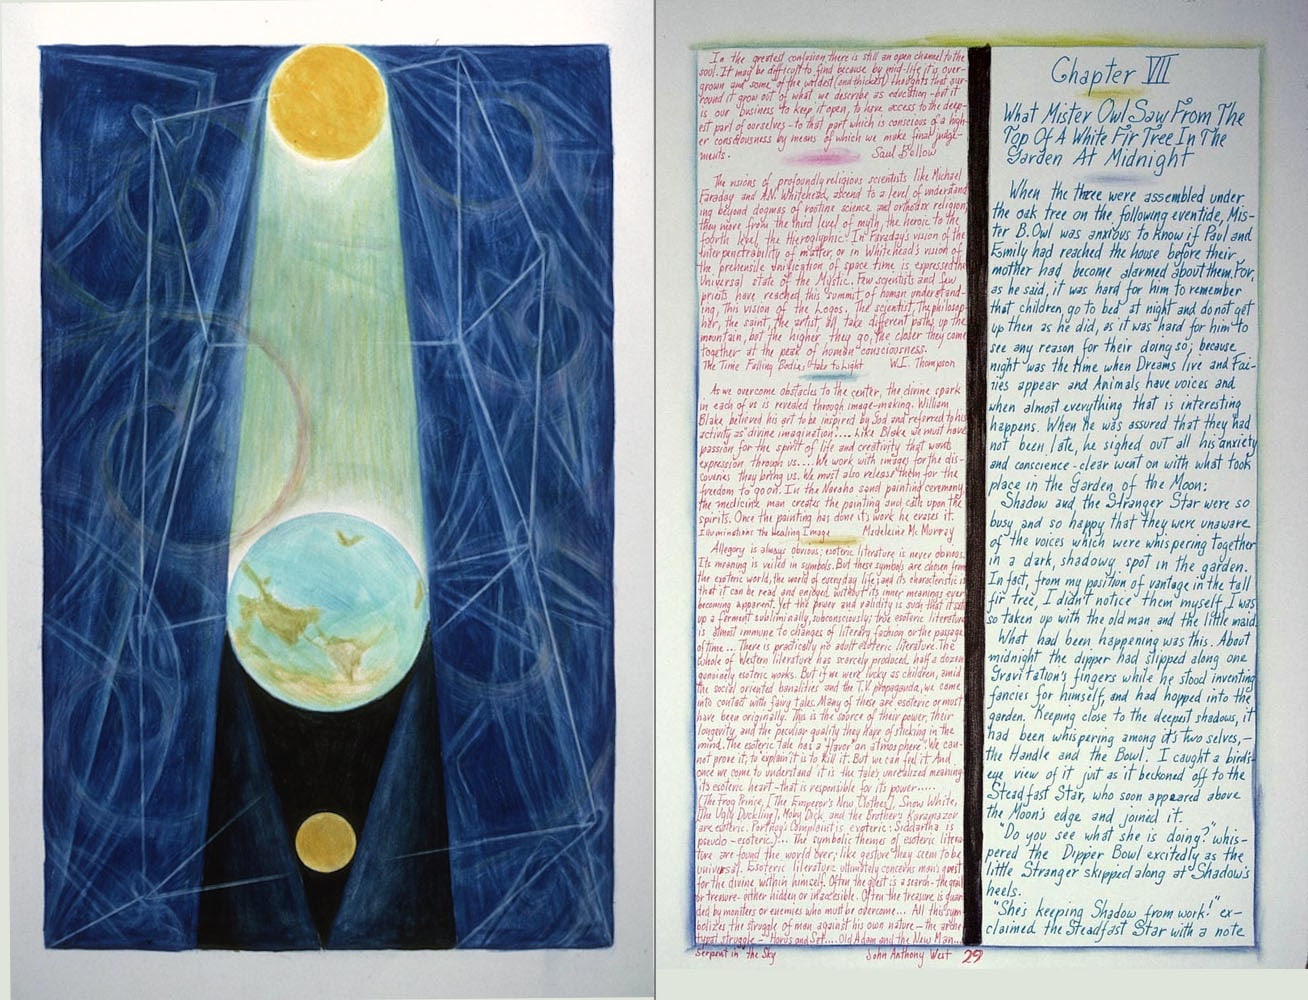 In the greatest confusion there is still an open channel to the
soul. It may be difficult to find because by mid-life it is over-
grown and some of the wildest (and thickest) thoughts that sur-
round it grow out of what we describe as education - but it
is our business to keep it open, to have access to the deep-
est part of ourselves - to that part which is conscious of a high-
er consciousness by means of which we make final judge-
ments.
Saul Bellow
The visions of profoundly religious scientists like Michael
Faraday and A.N. Whitehead, ascend to a level of understand
ing beyond dogmas of routine science and orthodox religion,
they move from the third level of myth, the heroic to the
fourth level, the hieroglyphic. In Faraday's vision of the
interpenetrability of matter, or in Whitehead's vision of
the prehensile unification of space time is expressed the
Universal state of the Mystic. Few scientists and few
priests have reached this summit of human understand-
ing, This vision of the Logos. The scientist, The philosop-
her, the saint, the artist all take different paths up the
mountain, but the higher they go, the closer they come
together at the peak of human consciousness.
The Time Falling Bodies take to Light W.I. Thompson
As we overcome obstacles to the center, the divine spark
in each of us is revealed through image-making. William
Blake believed his art to be inspired by God and referred to his
activity as "divine imagination".... Like Blake we must have
passion for the spirit of life and creativity that wants
expression through us.... We work with images for the dis-
coveries they bring us. We must also release them for the
freedom to go on. In the Navaho sand painting ceremony
the medicine man creates the painting and calls upon the
spirits. Once the painting has done its work he erases it.
Illuminations the Healing Image Madeleine Mc Murray
Allegory is always obvious; esoteric literature is never obvious.
Its meaning is veiled in symbols. But these symbols are chosen from
the exoteric world, the world of everyday life; and its characteristic is
that it can be read and enjoyed without its inner meanings ever
becoming apparent. Yet the power and validity is such that it sets
up a ferment subliminally, subconsciously; true esoteric literature
is almost immune to changes of literary fashion or the passage
of time... There is practically no adult esoteric literature. The
whole of Western literature has scarcely produced half a dozen
genuinely esoteric works. But if we were lucky as children, amid
the social oriented banalities and the T.V. propaganda, we came
into contact with fairy tales. Many of these are esoteric or must
have been originally. This is the source of their power, their
longevity, and the peculiar quality they have of sticking in the
mind. The esoteric tale has a "flavor" an "atmosphere". We can-
not prove it, to explain it is to kill it. But we can feel it. And
once we come to understand it is the tale's unrealized meaning
its esoteric heart - that is responsible for its power.....
[The Frog Prince, [The Emperor's New Clothes], Snow White,
[The Ugly Duckling], Moby Dick and the Brothers Karamazov
are esoteric. Portnoy's Complaint is exoteric: Siddartha is
pseudo-esoteric.)... The symbolic themes of esoteric litera-
ture are found the world over; like gesture they seem to be
universal. Esoteric literature ultimately concerns man's quest
for the divine within himself. Often the quest is a search - the goal
or treasure - either hidden or inaccesible. Often the treasure is guar
ded by monsters or enemies who must be overcome... All this sym-
bolizes the struggle of man against his own nature - the arche
typal struggle - Horus and Set.... Old Adam and the New Man...
Serpent in the Sky John Anthony West 29
Chapter VII
What Mister Owl Saw From The
Top Of A White Fir Tree In The
Garden At Midnight
When the three were assembled under
the oak tree on the following eventide, Mis-
ter B. Owl was anxious to know if Paul and
Emily had reached the house before their
mother had become alarmed about them. For,
as he said, it was hard for him to remember
that children go to bed at night and do not get
up then as he did, as it was hard for him to
see any reason for their doing so; because
night was the time when Dreams live and Fai-
ries appear and Animals have voices and
when almost everything that is interesting
happens. When he was assured that they had
not been late, he sighed out all his anxiety
and conscience-clear went on with what took
place in the Garden of the Moon:
Shadow and the Stranger Star were so
busy and so happy that they were unaware
of the voices which were whispering together
in a dark, shadowy spot in the garden.
In fact, from my position of vantage in the tall
fir tree, I didn't notice them myself, I was
so taken up with the old man and the little maid.
What had been happening was this. About
midnight the dipper had slipped along one
Gravitation's fingers while he stood inventing
fancies for himself, and had hopped into the
garden. Keeping close to the deepest shadows, it
had been whispering among its two selves,-
the Handle and the Bowl. I caught a birds-
eye view of it just as it beckoned off to the
Steadfast Star, who soon appeared above
the Moon's edge and joined it.
"Do you see what she is doing?" whis-
pered the Dipper Bowl excitedly as the
little Stranger skipped along at Shadow's
heels.
"She's keeping Shadow from work!" ex-
claimed the Steadfast Star with a note